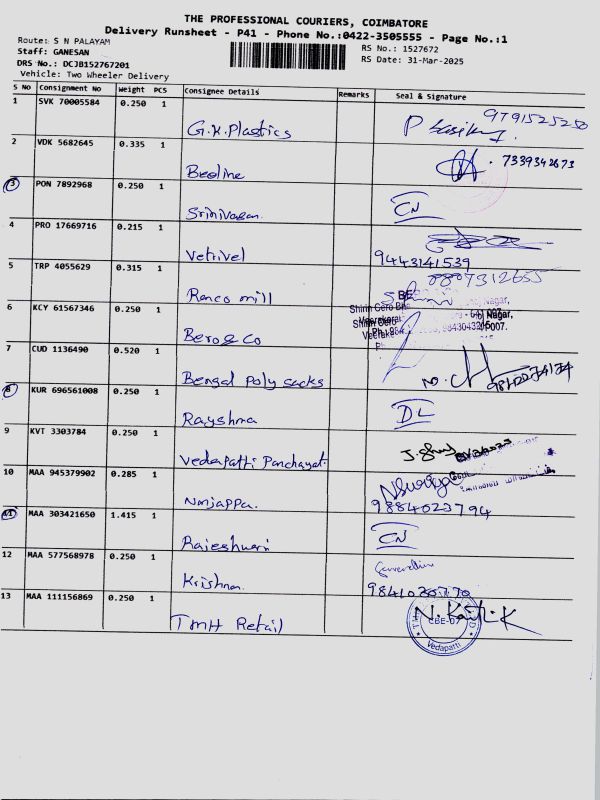 THE PROFESSIONAL COURIERS, COIMBATORE
Delivery Runsheet - P41 - Phone No.:0422-3505555 - Page No.:1
Route: S N PALAYAM
Staff: GANESAN
DRS No.: DCJB152767201
Vehicle: Two Wheeler Delivery
RS No.: 1527672
RS Date: 31-Mar-2025
S No Consignment No Weight PCS Consignee Details Remarks Seal & Signature
1 SVK 70005584 0.250 1 G.K.Plastics 9791525250
2 VDK 5682645 0.335 1 Beeline 7339342673
3 PON 7892968 0.250 1 Srinivasan CN
4 PRO 17669716 0.215 1 Vetrivel 9443141539
5 TRP 4055629 0.315 1 Ranco mill 8807312655
6 KCY 61567346 0.250 1 Bero & Co
7 CUD 1136490 0.520 1 Bengal Poly sacks
8 KUR 696561008 0.250 1 Rayshma DL
9 KVT 3303784 0.250 1 Vedapatti Panchayat
10 MAA 945379902 0.285 1 Ninjappa. 9884023794
11 MAA 303421650 1.415 1 Rajeshwari CN
12 MAA 577568978 0.250 1 Krishna
13 MAA 111156869 0.250 1 TMH Retail N. Kartik K
CBE-07
Vedapatti